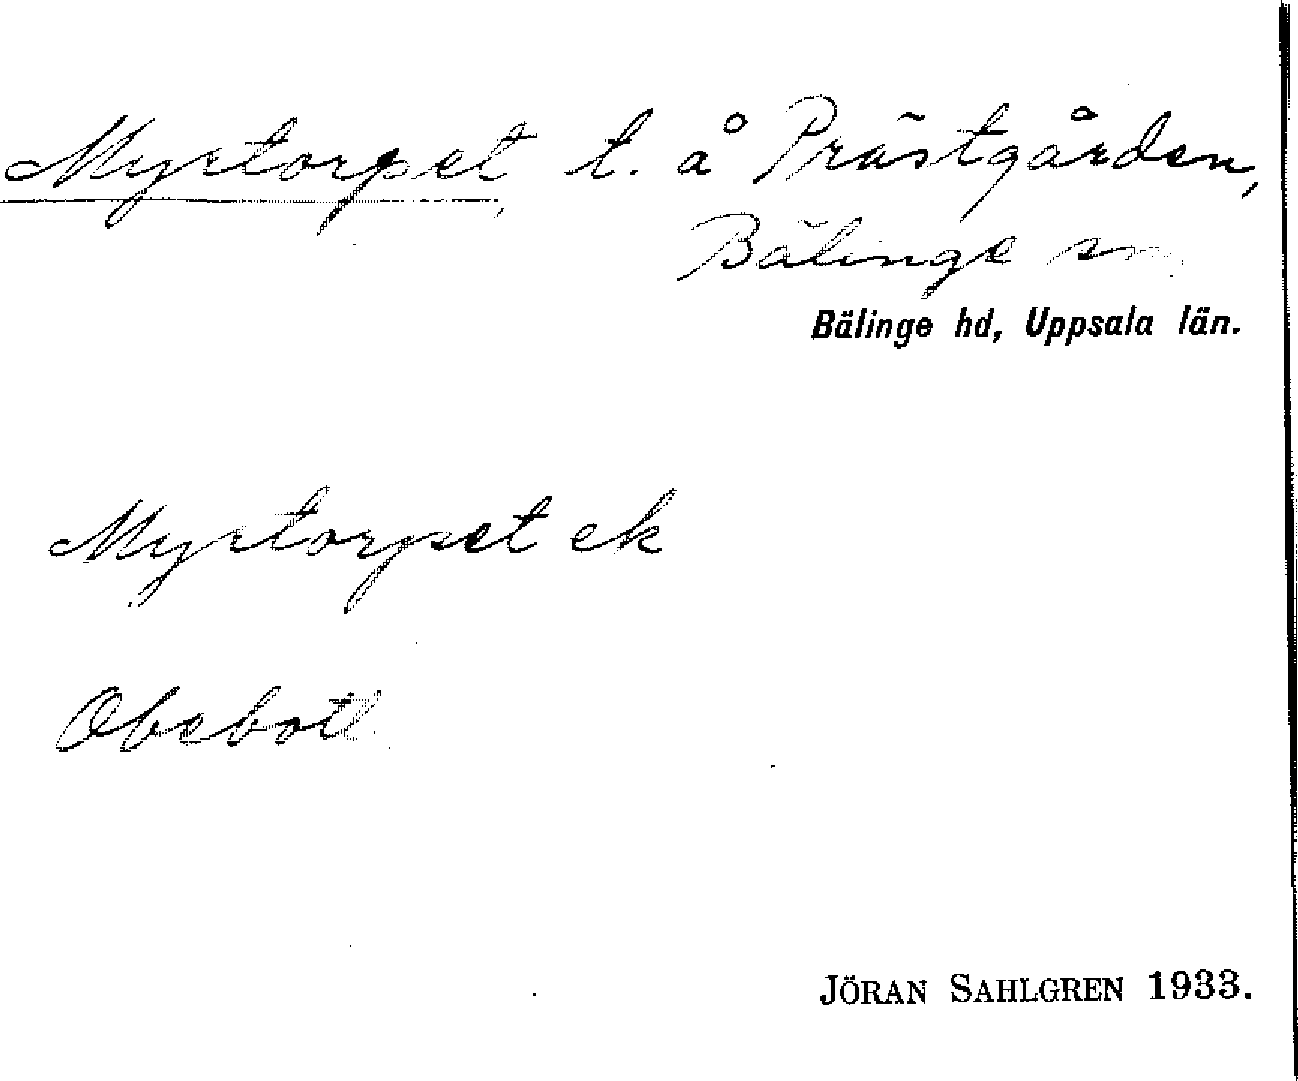 Myrtorpet t. å Prästgården,
Bälinge sn
Bälinge hd, Uppsala län.
Myrtorpet ek
Obebott
JÖRAN SAHLGREN 1933.